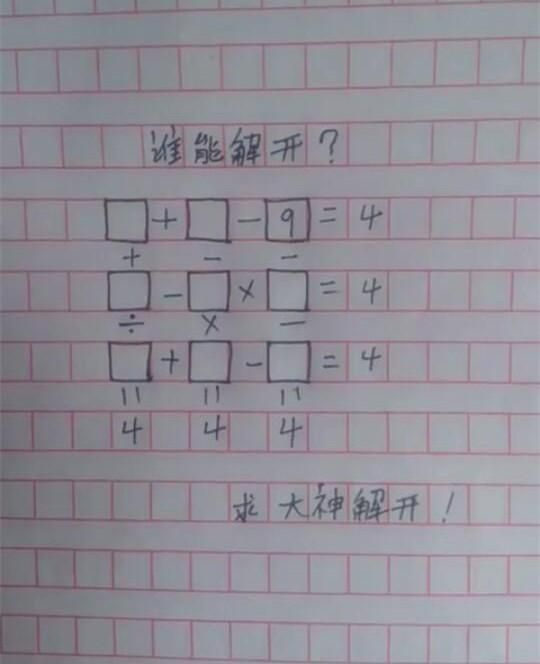 谁能解开?
□+□-9=4
+ - -
□-□×□=4
÷ × -
□+□-□=4
= = =
4 4 4
求大神解开!